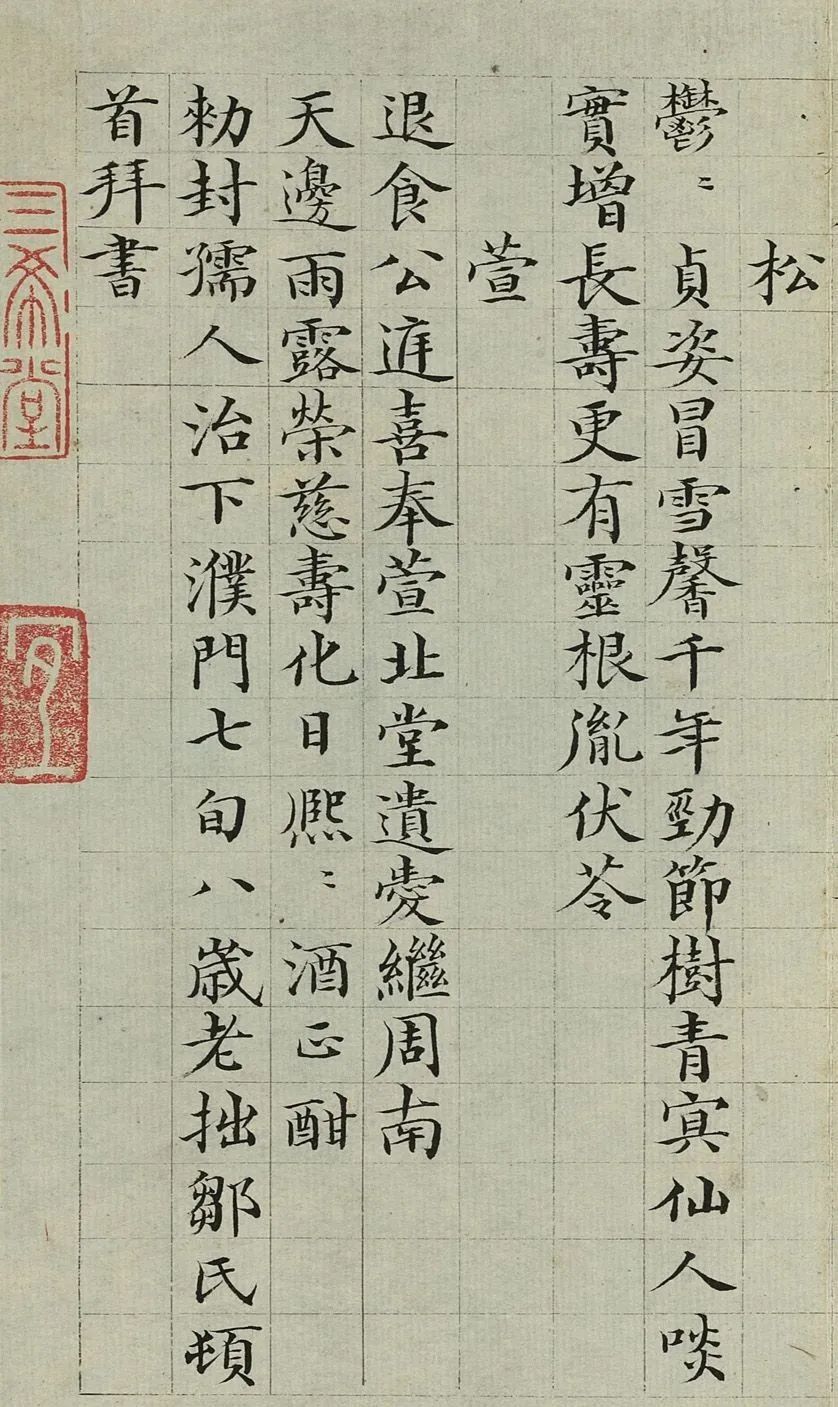 松
鬱〻貞姿冒雪馨千年勁節樹青㝠仙人啖
實增長壽更有靈根胤伏苓
萱
退食公庭喜奉萱北堂遺愛繼周南
天邊雨露荣慈壽化日熈〻酒正酣
勑封孺人治下濮門七旬八歲老拙鄒氏頓
首拜書
三希堂
宜子